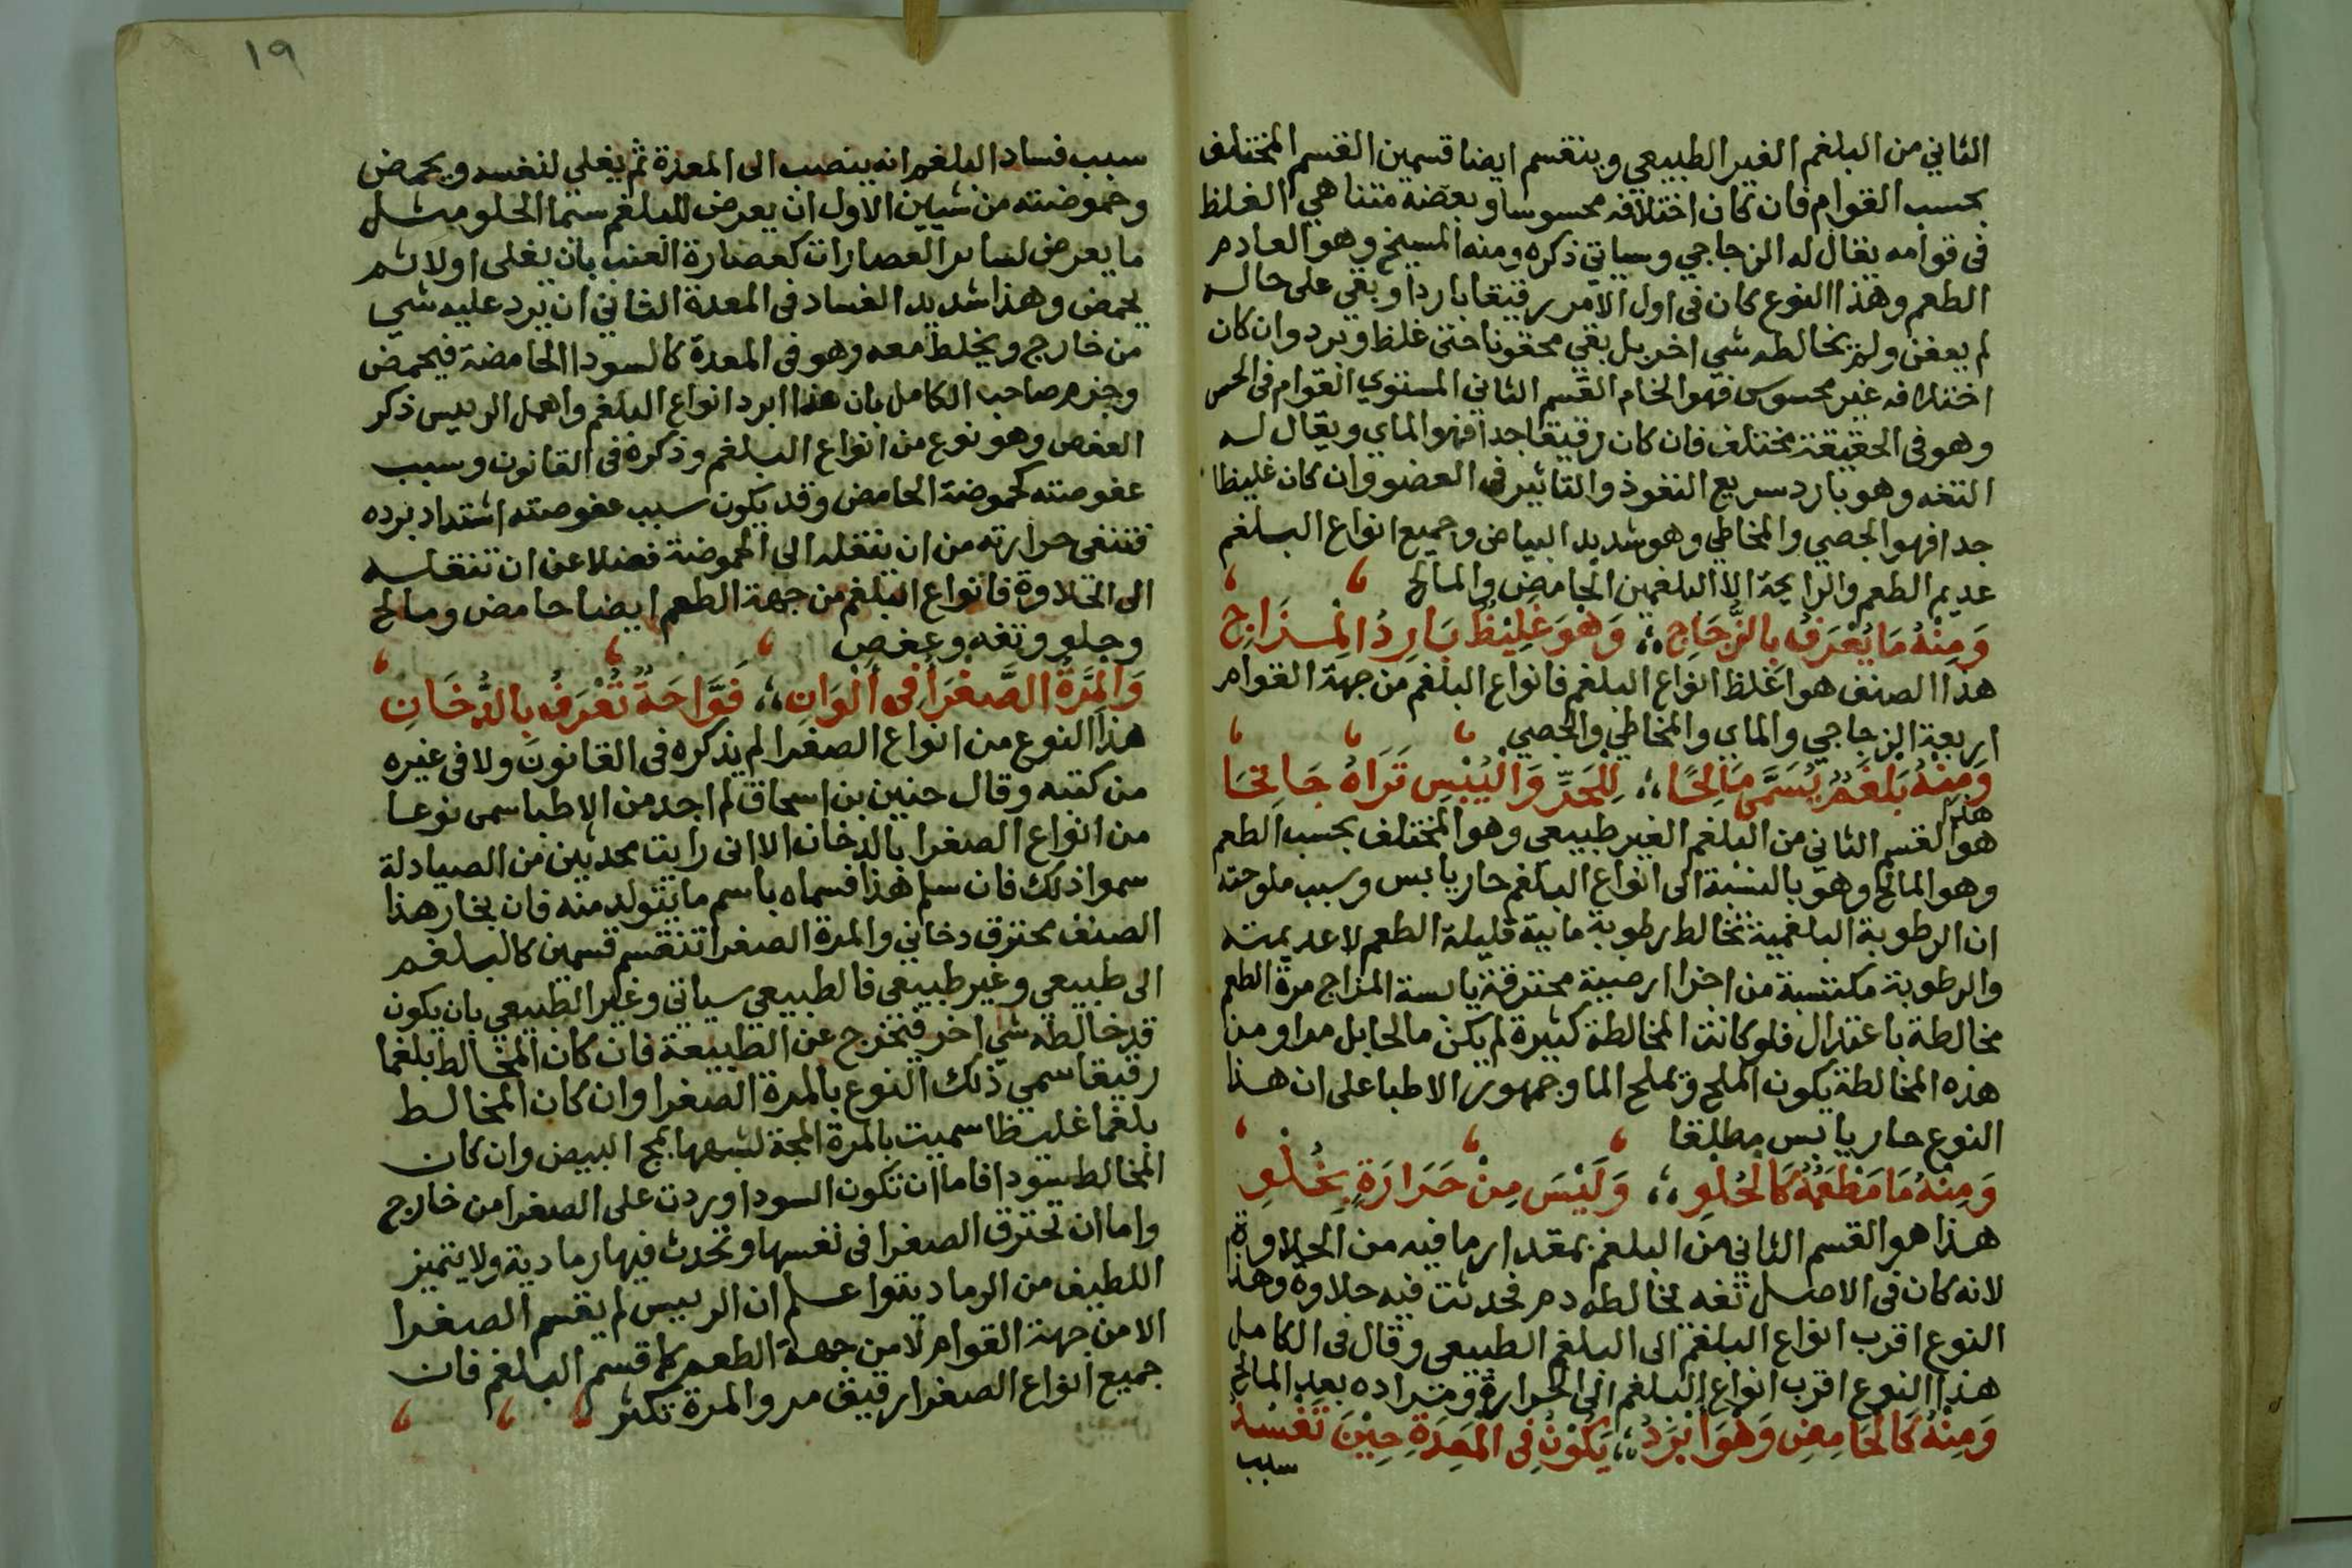 الثاني من البلغم الغير الطبيعي وينقسم ايضا قسمين القسم المختلف
بحسب القوام فان كان اختلافه محسوسا وبعضه متناهي الغلظ
في قوامه يقال له الزجاجي وسياتي ذكره ومنه المسيخ وهو العادم
الطعم وهذا النوع كان في اول الامر رقيقا باردا وبقي على حاله
لم يعفن ولم يخالطه شي اخر بل بقي محقونا حتى غلظ وبرد وان كان
اختلافه غير محسوس فهو الخام القسم الثاني المستوي القوام في الحس
وهو في الحقيقة مختلف فان كان رقيقا جدا فهو الماي ويقال له
التفه وهو بارد سريع النفوذ والتاثير في العضو وان كان غليظا
جدا فهو الجصي والمخاطي وهو شديد البياض وجميع انواع البلغم
عديم الطعم والرايحة الا البلغمين الحامض والمالح
وَمِنْهُ مَا يُعْرَفُ بِالزُّجَاجِ ؛ وَهوَ غَلِيْظٌ بَارِدُ الْمِزَاجِ
هذا الصنف هو اغلظ انواع البلغم فانواع البلغم من جهة القوام
اربعة الزجاجي والماي والمخاطي والجصي
وَمِنْهُ بَلْغَمٌ يُسَمَّى مَالِحًا ؛ لِلْحَرِّ وَالْيُبْسِ تَرَاهُ جَانِحَا
هذا
هو القسم الثاني من البلغم الغير طبيعي وهو المختلف بحسب الطعم
وهو المالح وهو بالنسبة الى انواع البلغم حار يابس وسبب ملوحته
ان الرطوبة البلغمية تخالط رطوبة مايية قليلة الطعم لا عديمته
والرطوبة مكتسبة من اجزا ارضيية محترقة يابسة المزاج مرة الطعم
مخالطة باعتدال فلو كانت المخالطة كثيرة لم يكن مالحا بل مرا ومن
هذه المخالطة يكون الملح وتملح الما وجمهور الاطبا على ان هذا
النوع حار يابس مطلقا
وَمِنْهُ مَا مَطْعَمُهُ كَالْحُلْوِ ؛ وَلَيْسَ مِنْ حَرَارَةٍ بِخُلْوِ
هذا هو القسم الثاني من البلغم بمقدار ما فيه من الحلاوة
لانه كان في الاصل تفه يخالطه دم فحدثت فيه حلاوة وهذا
النوع اقرب انواع البلغم الى البلغم الطبيعي وقال في الكامل
هذا النوع اقرب انواع البلغم الى الحرارة ومراده بعد المالح
وَمِنْهُ كَالْحَامِضِ وَهْوَ اَبْرَدُ ؛ يَكُوْنُ فِي الْمَعِدَةِ حِيْنَ تَفْسُدُ
سبب
١٩
سبب فساد البلغم انه ينصب الى المعدة ثم يغلي لنفسه ويحمض
وحموضته من شيين الاول ان يعرض للبلغم سيما الحلو مثل
ما يعرض لساير العصارات كعصارة العنب بان يغلى اولا ثم
يحمض وهذا شديد الفساد في المعدة الثاني ان يرد عليه شي
من خارج ويخلط معه وهو في المعدة كالسودا الحامضة فيحمض
وجزم صاحب الكامل بان هذا ابرد انواع البلغم واهمل الرييس ذكر
العفص وهو نوع من انواع البلغم وذكره في القانون وسبب
عفوصته كحموضة الحامض وقد يكون سبب عفوصته اشتداد برده
فتنفى حرارته من ان ينقله الى الحموضة فضلا عن ان تنقله
الى الحلاوة فانواع البلغم من جهة الطعم ايضا حامض ومالح
وحلو وتفه وعفص
وَالْمِرَّةُ الصَّفْرَا فِي اَلْوَانِ ؛ فَوَّاحَةٌ تُعْرَفُ بِالدُّخَانِ
هذا النوع من انواع الصفرا لم يذكره في القانون ولا في غيره
من كتبه وقال حنين بن اسحاق لم اجد من الاطبا سمى نوعا
من انواع الصفرا بالدخان الا انى رايت محدثين من الصيادلة
سموا ذلك فان سلم هذا فسماه باسم ما يتولد منه فان بخار هذا
الصنف محترق دخاني والمرة الصفرا تنقسم قسمين كالبلغم
الى طبيعي وغير طبيعي فالطبيعي سياتي وغير الطبيعي بان يكون
قد خالطه شي اخر فتخرج عن الطبيعة فان كان المخالط بلغما
رقيقا سمي ذلك النوع بالمرة الصفرا وان كان المخالط
بلغما غليظا سميت بالمرة المحة لشبهها بمح البيض وان كان
المخالط سودا فاما ان تكون السودا وردت على الصفرا من خارج
واما ان تحترق الصفرا في نفسها وتحدث فيها رمادية ولا يتميز
اللطيف من الرمادية واعلم ان الرييس لم يقسم الصفرا
الا من جهة القوام لا من جهة الطعم كما قسم البلغم فان
جميع انواع الصفرا رقيق مر والمرة تكثر